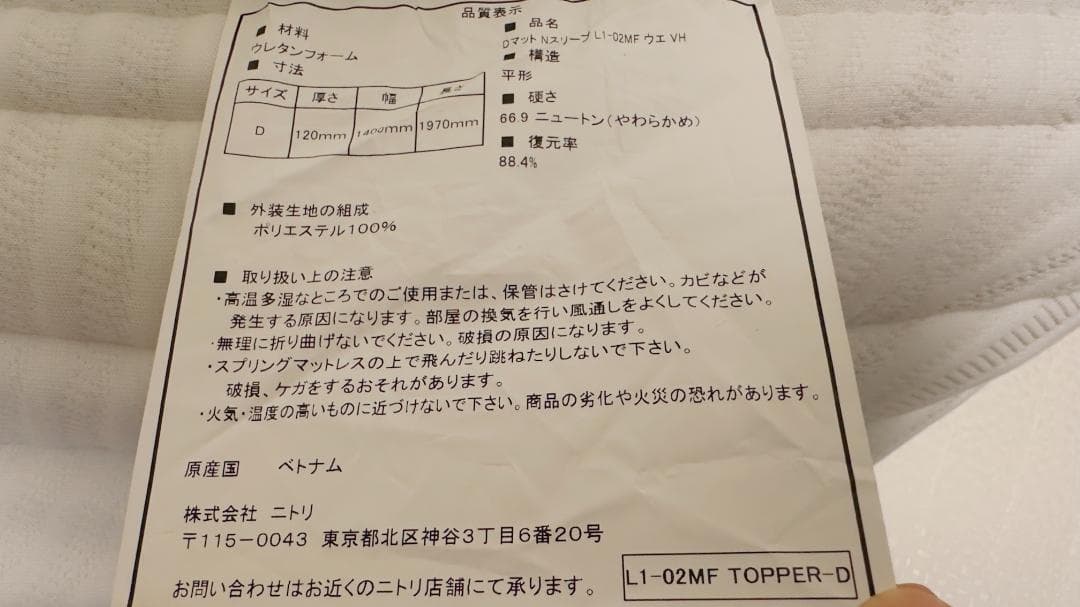 品質表示
■ 材料
ウレタンフォーム
■ 寸法
サイズ 厚さ 幅 長さ
D 120mm 1400mm 1970mm
■ 品名
Dマット Nスリープ L1-02MF ウエ VH
■ 構造
平形
■ 硬さ
66.9 ニュートン(やわらかめ)
■ 復元率
88.4%
■ 外装生地の組成
ポリエステル100%
■ 取り扱い上の注意
・高温多湿なところでのご使用または、保管はさけてください。カビなどが
発生する原因になります。部屋の換気を行い風通しをよくしてください。
・無理に折り曲げないでください。破損の原因になります。
・スプリングマットレスの上で飛んだり跳ねたりしないで下さい。
破損、ケガをするおそれがあります。
・火気・温度の高いものに近づけないで下さい。商品の劣化や火災の恐れがあります。
原産国 ベトナム
株式会社 ニトリ
〒115-0043 東京都北区神谷3丁目6番20号
お問い合わせはお近くのニトリ店舗にて承ります。
L1-02MF TOPPER-D